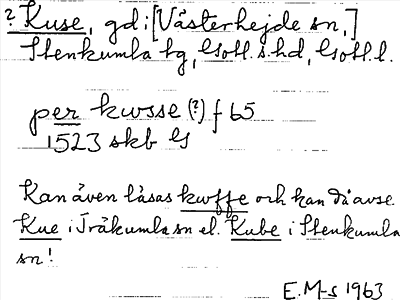 ? Kuse, gd i [Västerhejde sn,]
Stenkumla tg, Gotl. s. hd, Gotl. l.
per kwsse (?) f 65
1523 skb G
Kan även läsas kwffe och kan då avse
Kue i Träkumla sn el. Kube i Stenkumla
sn!
E.M-s 1963